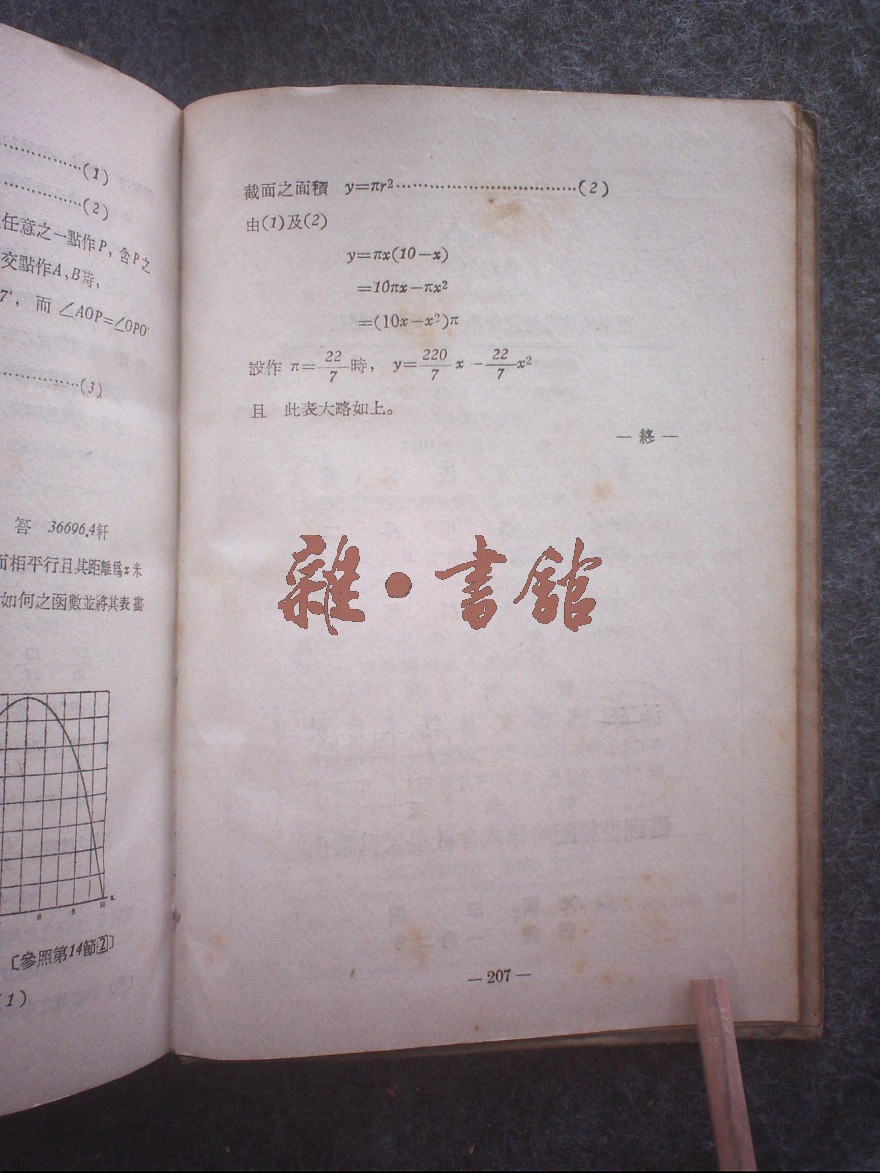 ……………(1)
……………(2)
任意之一點作P，含P之
交點作A,B時，
7′，而 ∠AOP=∠OPO′
……………(3)
答 36696.4粁
面相平行且其距離爲x米
如何之函數並將其表畫
〔參照第14節②〕
(1)
截面之面積 y=πr²……………………………(2)
由(1)及(2)
y=πx(10−x)
=10πx−πx²
=(10x−x²)π
設作 π=22/7時， y=220/7 x −22/7 x²
且 此表大略如上。
— 終 —
雜·書館
—207—